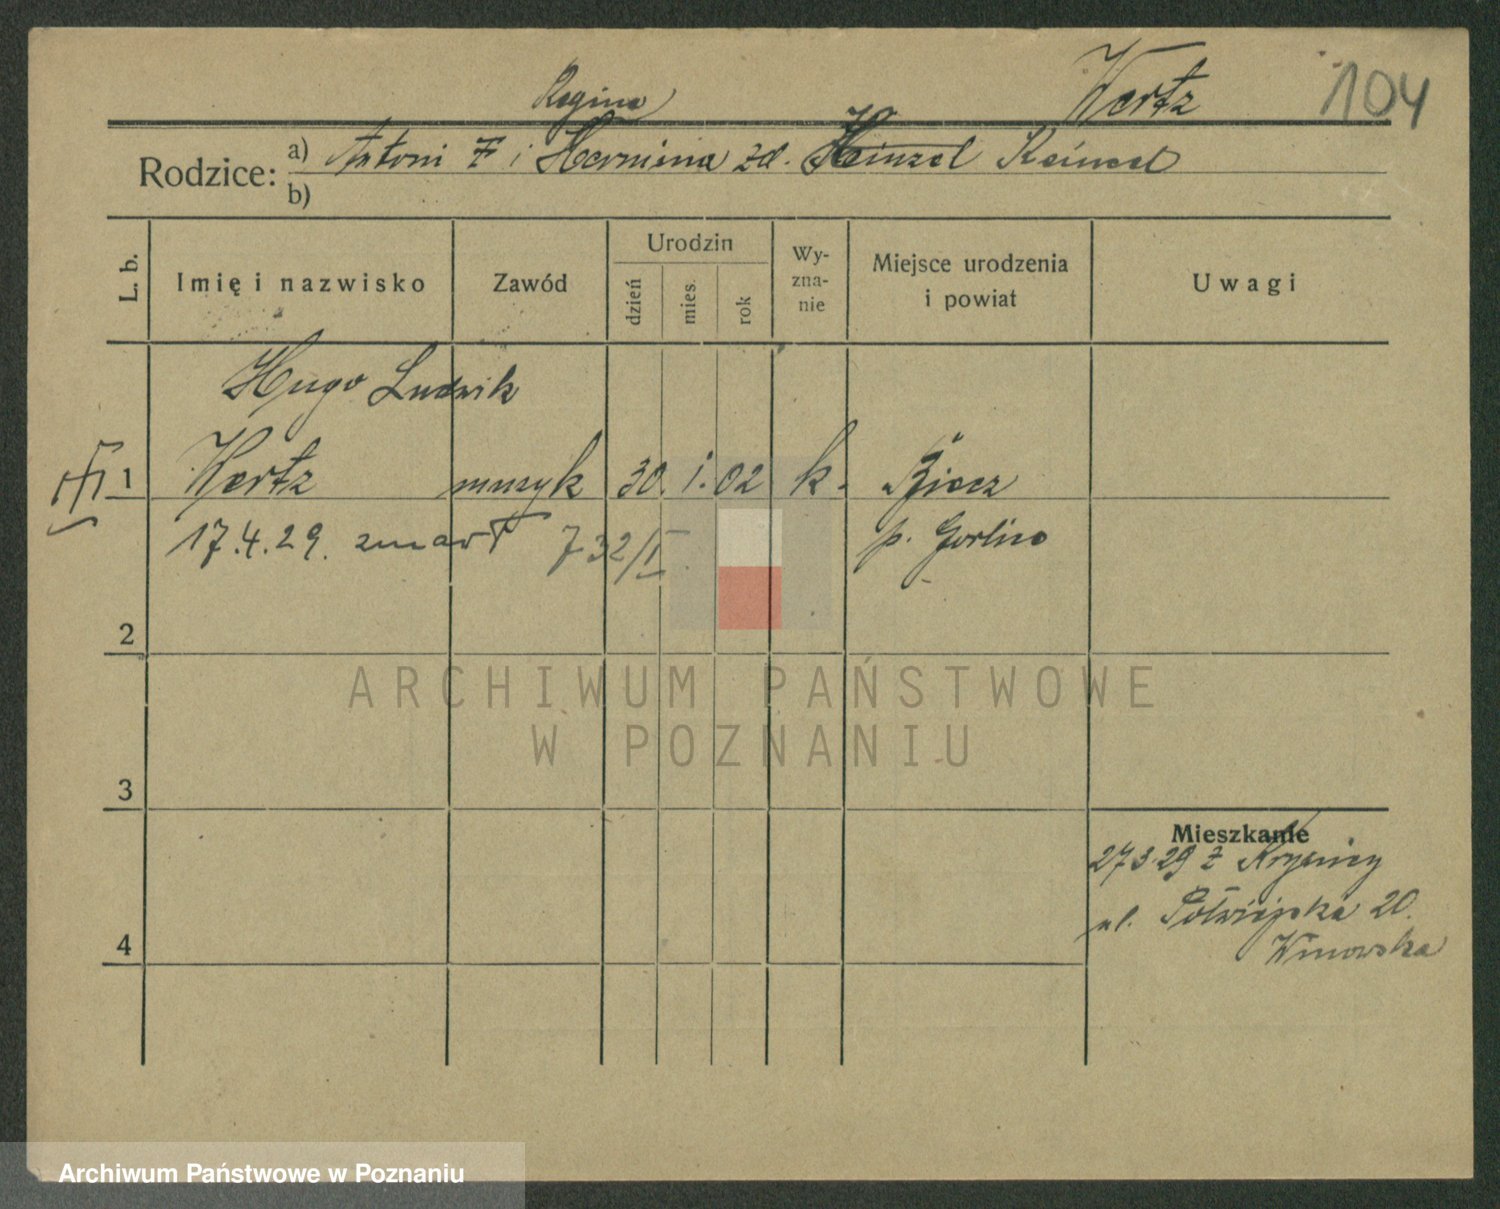 Wertz 104
Regina
Rodzice: a) Antoni i Hermina zd. Heinzel Keincel
b)
L. b. Imię i nazwisko Zawód Urodzin dzień mies. rok Wy-zna-nie Miejsce urodzenia i powiat Uwagi
Hugo Ludwik
1 Wertz muzyk 30. 1. 02 k. Biecz
17.4.29. zmarł 732/I p. Gorlice
2
3
Mieszkanie
27 3 29 z Krynicy
ul. Półwiejska 20.
Winowska
4
ARCHIWUM PAŃSTWOWE
W POZNANIU
Archiwum Państwowe w Poznaniu